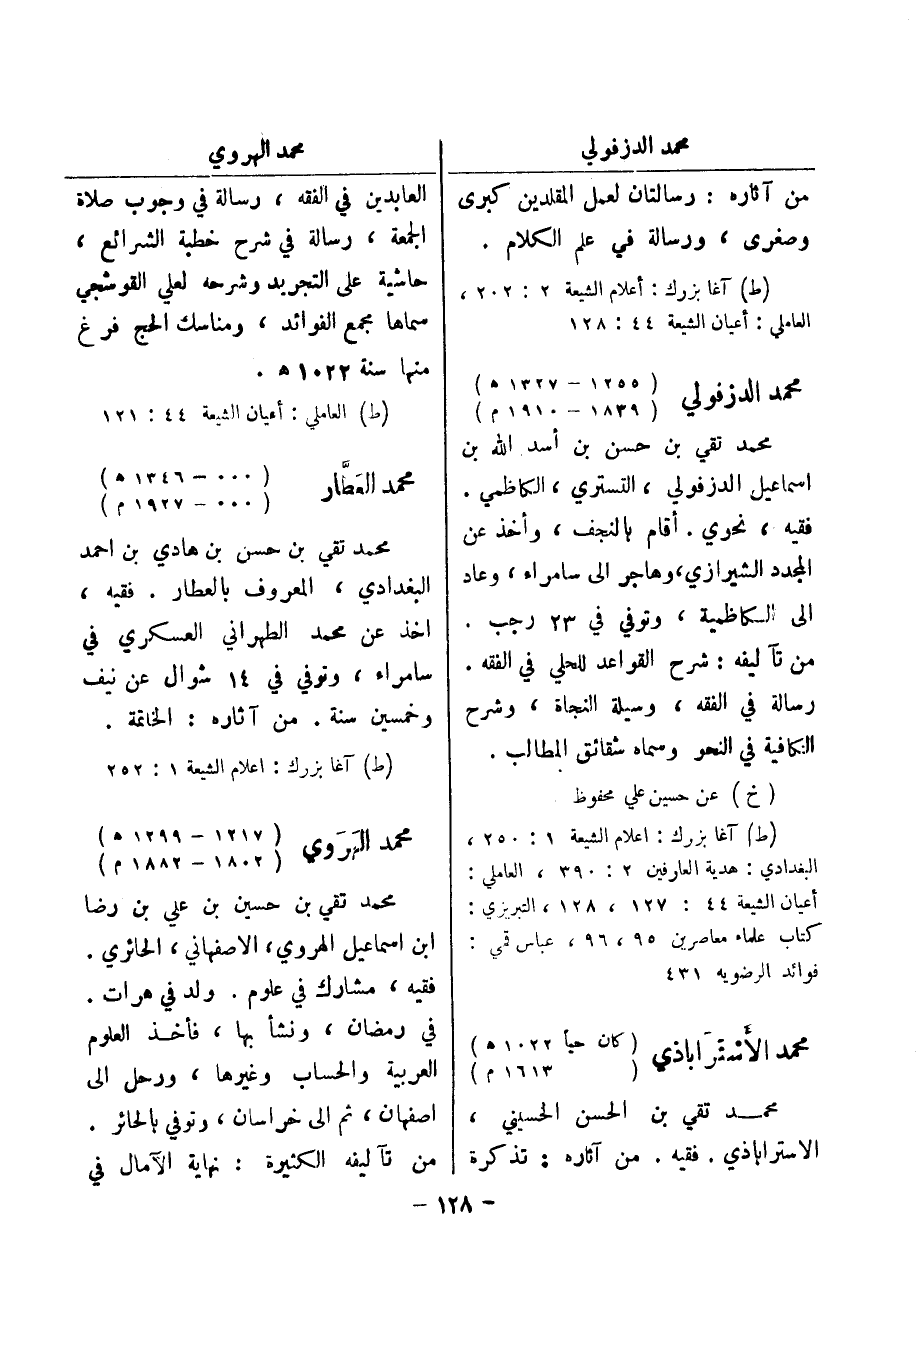 محمد الدزفولي
من آثاره : رسالتان لعمل المقلدين كبرى
وصغرى ، ورسالة في علم الكلام .
(ط) آغا بزرك : أعلام الشيعة ٢ : ٢٠٢ ،
العاملي : أعيان الشيعة ٤٤ : ١٢٨
محمد الدزفولي ( ١٢٥٥ – ١٣٢٧ ه )
( ١٨٣٩ – ١٩١٠ م )
محمد تقي بن حسن بن أسد الله بن
اسماعيل الدزفولي ، التستري ، الكاظمي .
فقيه ، نحوي . أقام بالنجف ، وأخذ عن
المجدد الشيرازي،وهاجر الى سامراء ، وعاد
الى الكاظمية ، وتوفي في ٢٣ رجب .
من تآليفه : شرح القواعد للحلي في الفقه .
رسالة في الفقه ، وسيلة النجاة ، وشرح
الكافية في النحو وسماه شقائق المطالب .
( خ ) عن حسين علي محفوظ
(ط) آغا بزرك : اعلام الشيعة ١ : ٢٥٠ ،
البغدادي : هدية العارفين ٢ : ٣٩٠ ، العاملي :
أعيان الشيعة ٤٤ : ١٢٧ ، ١٢٨ ، التبريزي :
كتاب علماء معاصرين ٩٥ ، ٩٦ ، عباس قمي :
فوائد الرضويه ٤٣١
محمد الأَسْتَرَاباذي ( كان حياً ١٠٢٢ ه )
( ١٦١٣ م )
محمد تقي بن الحسن الحسيني ،
الاستراباذي . فقيه . من آثاره : تذكرة
محمد الهروي
العابدين في الفقه ، رسالة في وجوب صلاة
الجمعة ، رسالة في شرح خطبة الشرائع ،
حاشية على التجريد وشرحه لعلي القوشجي
سماها مجمع الفوائد ، ومناسك الحج فرغ
منها سنة ١٠٢٢ ه .
(ط) العاملي : أعيان الشيعة ٤٤ : ١٢١
محمد العَطَّار ( ٠٠٠ – ١٣٤٦ ه )
( ٠٠٠ – ١٩٢٧ م )
محمد تقي بن حسن بن هادي بن احمد
البغدادي ، المعروف بالعطار . فقيه ،
اخذ عن محمد الطهراني العسكري في
سامراء ، وتوفي في ١٤ شوال عن نيف
وخمسين سنة . من آثاره : الخاتمة .
(ط) آغا بزرك : اعلام الشيعة ١ : ٢٥٢
محمد الهَرَوي ( ١٢١٧ – ١٢٩٩ ه )
( ١٨٠٢ – ١٨٨٢ م )
محمد تقي بن حسين بن علي بن رضا
ابن اسماعيل الهروي، الاصفهاني ، الحائري .
فقيه ، مشارك في علوم . ولد في هرات .
في رمضان ، ونشأ بها ، فأخذ العلوم
العربية والحساب وغيرها ، ورحل الى
اصفهان ، ثم الى خراسان ، وتوفي بالحائر .
من تآليفه الكثيرة : نهاية الآمال في
– ١٢٨ –